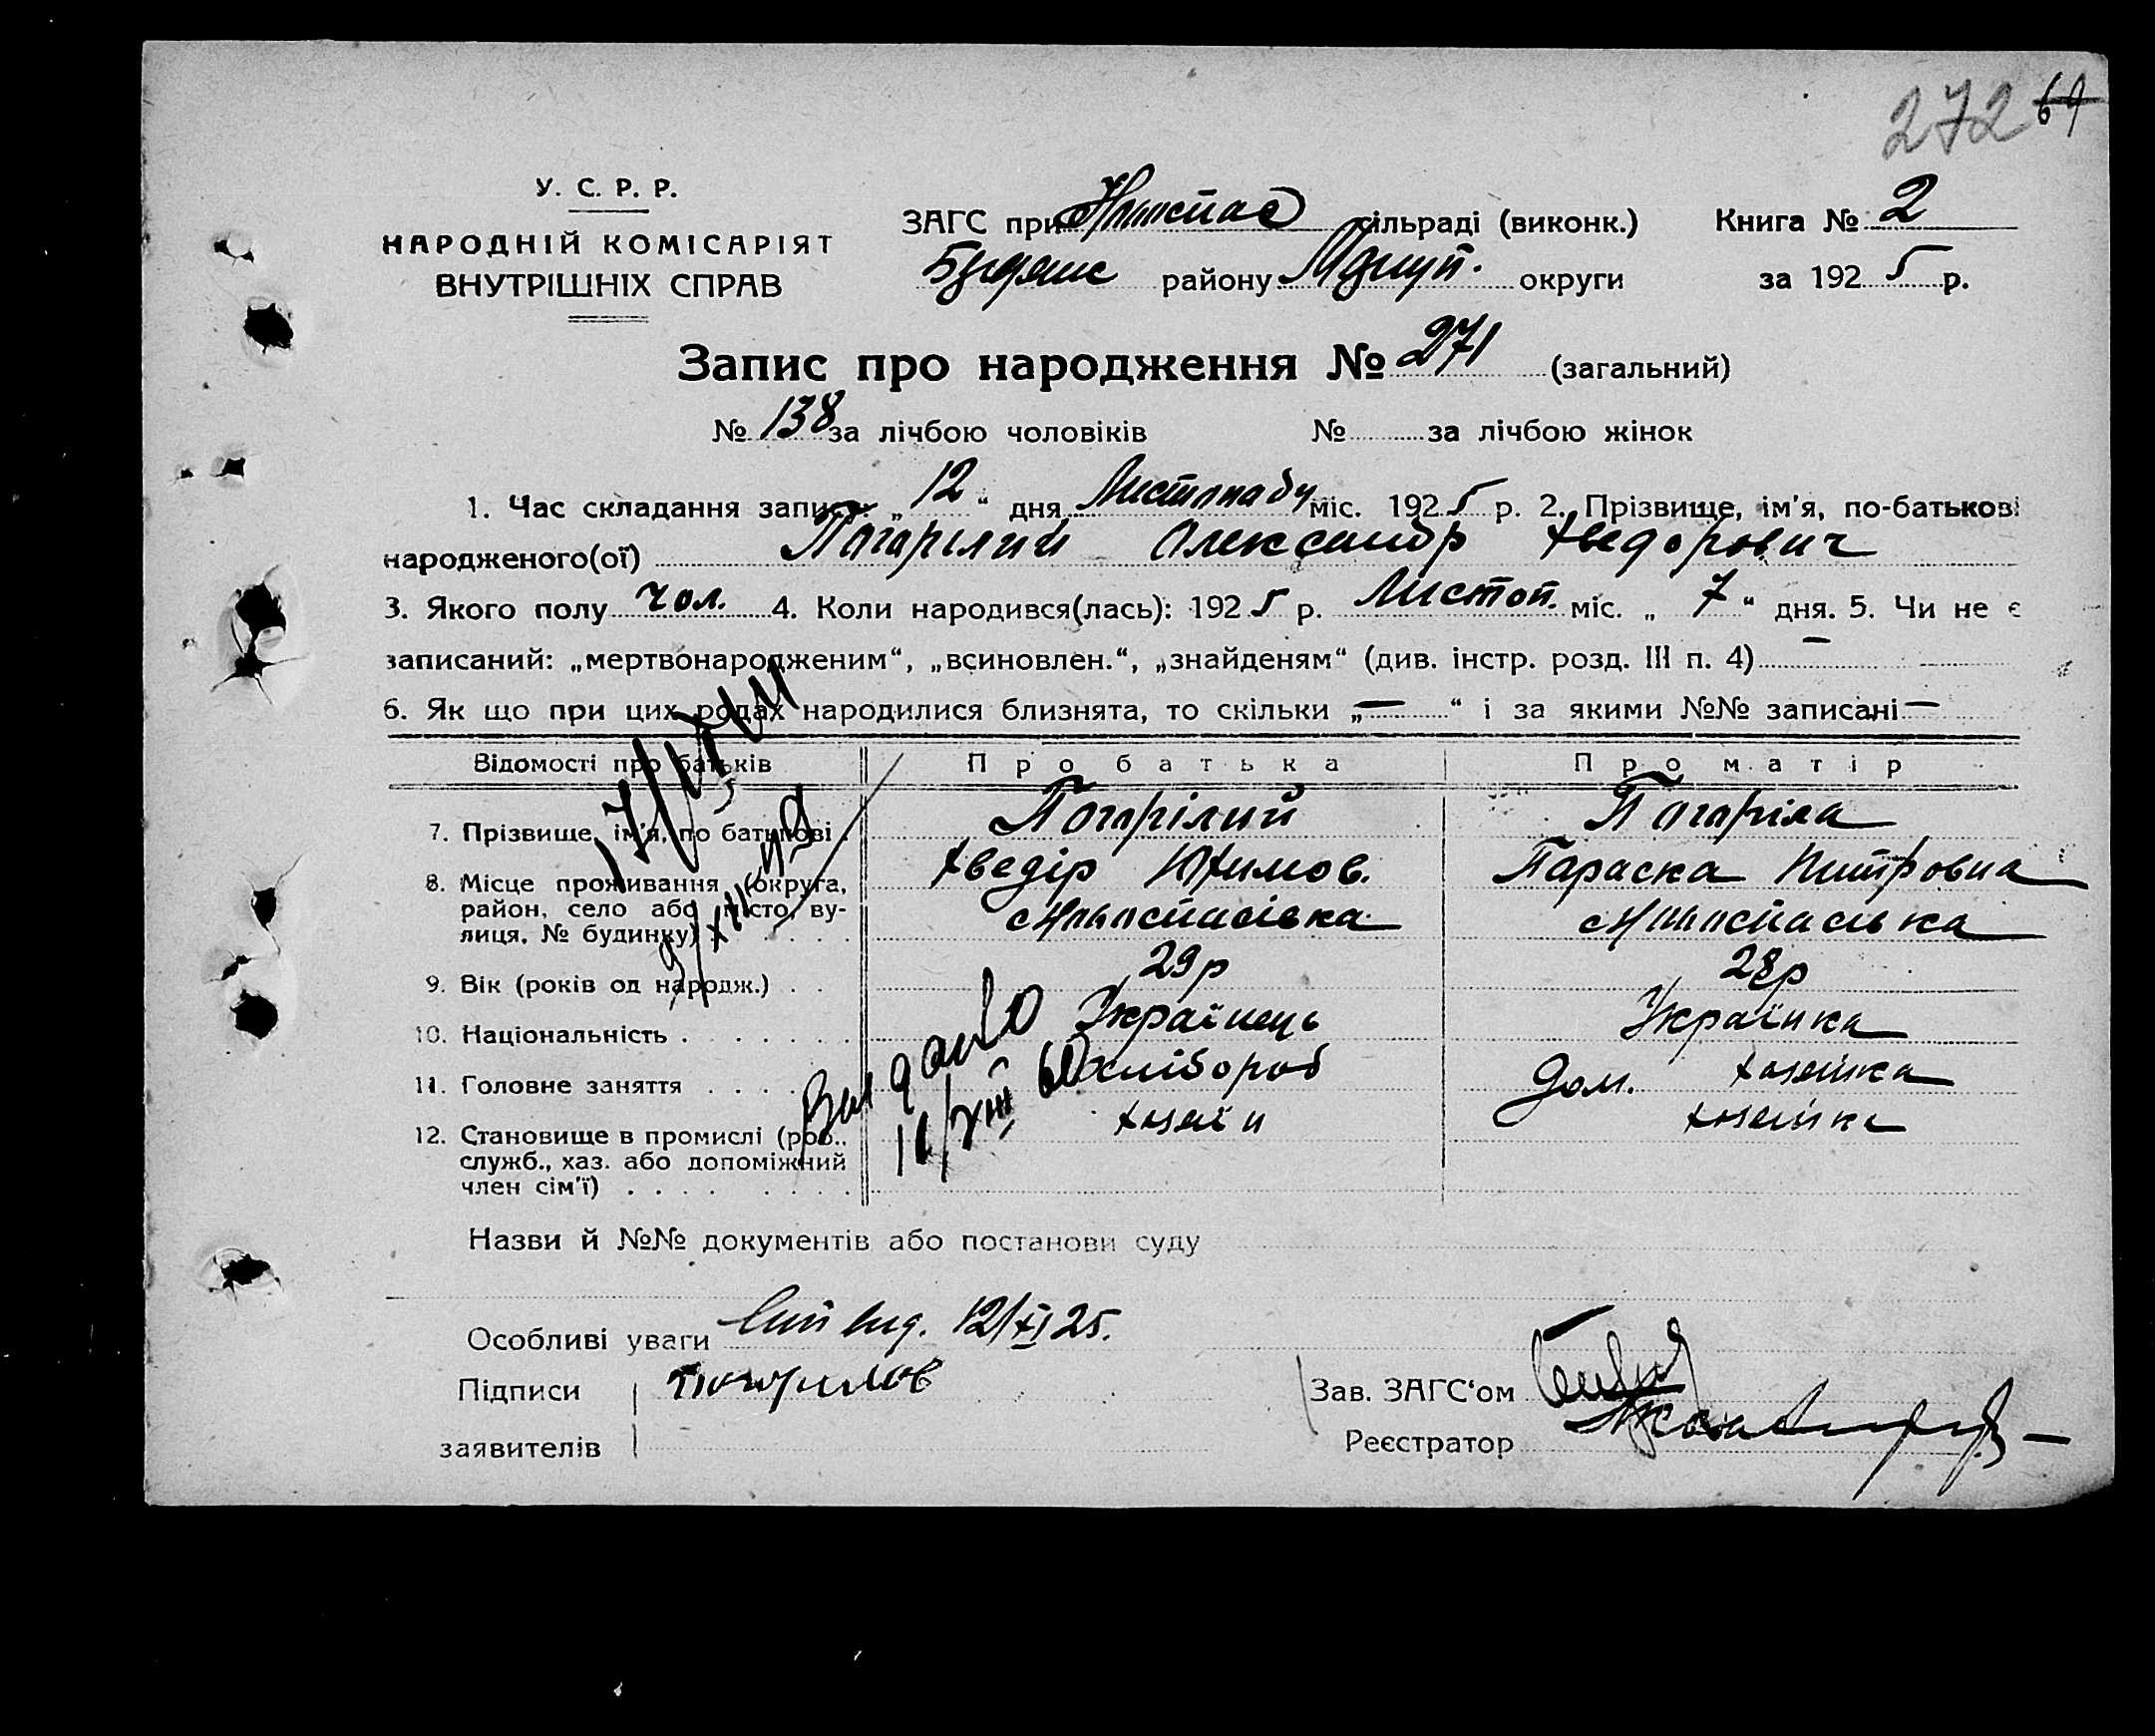 272 69
У. С. Р. Р.
НАРОДНІЙ КОМІСАРІЯТ
ВНУТРІШНІХ СПРАВ
ЗАГС при сільраді (виконк.) Книга № 2
району округи за 1925 р.
Запис про народження № 271 (загальний)
№ 138 за лічбою чоловіків № за лічбою жінок
1. Час складання запису: „ 12 “ дня Листопаду міс. 1925 р. 2. Прізвище, ім'я, по-батькові
народженого(ої) Погарілий Олександр Хведорович
3. Якого полу чол. 4. Коли народився(лась): 1925 р. Листоп. міс. „ 7 “ дня. 5. Чи не є
записаний: „мертвонародженим“, „всиновлен.“, „знайденям“ (див. інстр. розд. III п. 4) —
6. Як що при цих родах народилися близнята, то скільки „ — “ і за якими №№ записані —
Відомості про батьків Про батька Про матір
7. Прізвище, ім'я, по батькові . Погарілий Погаріла
8. Місце проживання (округа, Хведір Юхимов. Параска
район, село або місто, ву-
лиця, № будинку)
9. Вік (років од народж.) . . 29 р 28 р
10. Національність . . . . . . . Українець Українка
11. Головне заняття . . . . . Хлібороб Дом. хазяйка
12. Становище в промислі (роб., хазяїн хазяйка
служб., хаз. або допоміжний
член сім'ї) . . . . . . . .
Видано
Назви й №№ документів або постанови суду
Особливі уваги 12/XI 25.
Підписи
заявителів
Зав. ЗАГС‘ом
Реєстратор